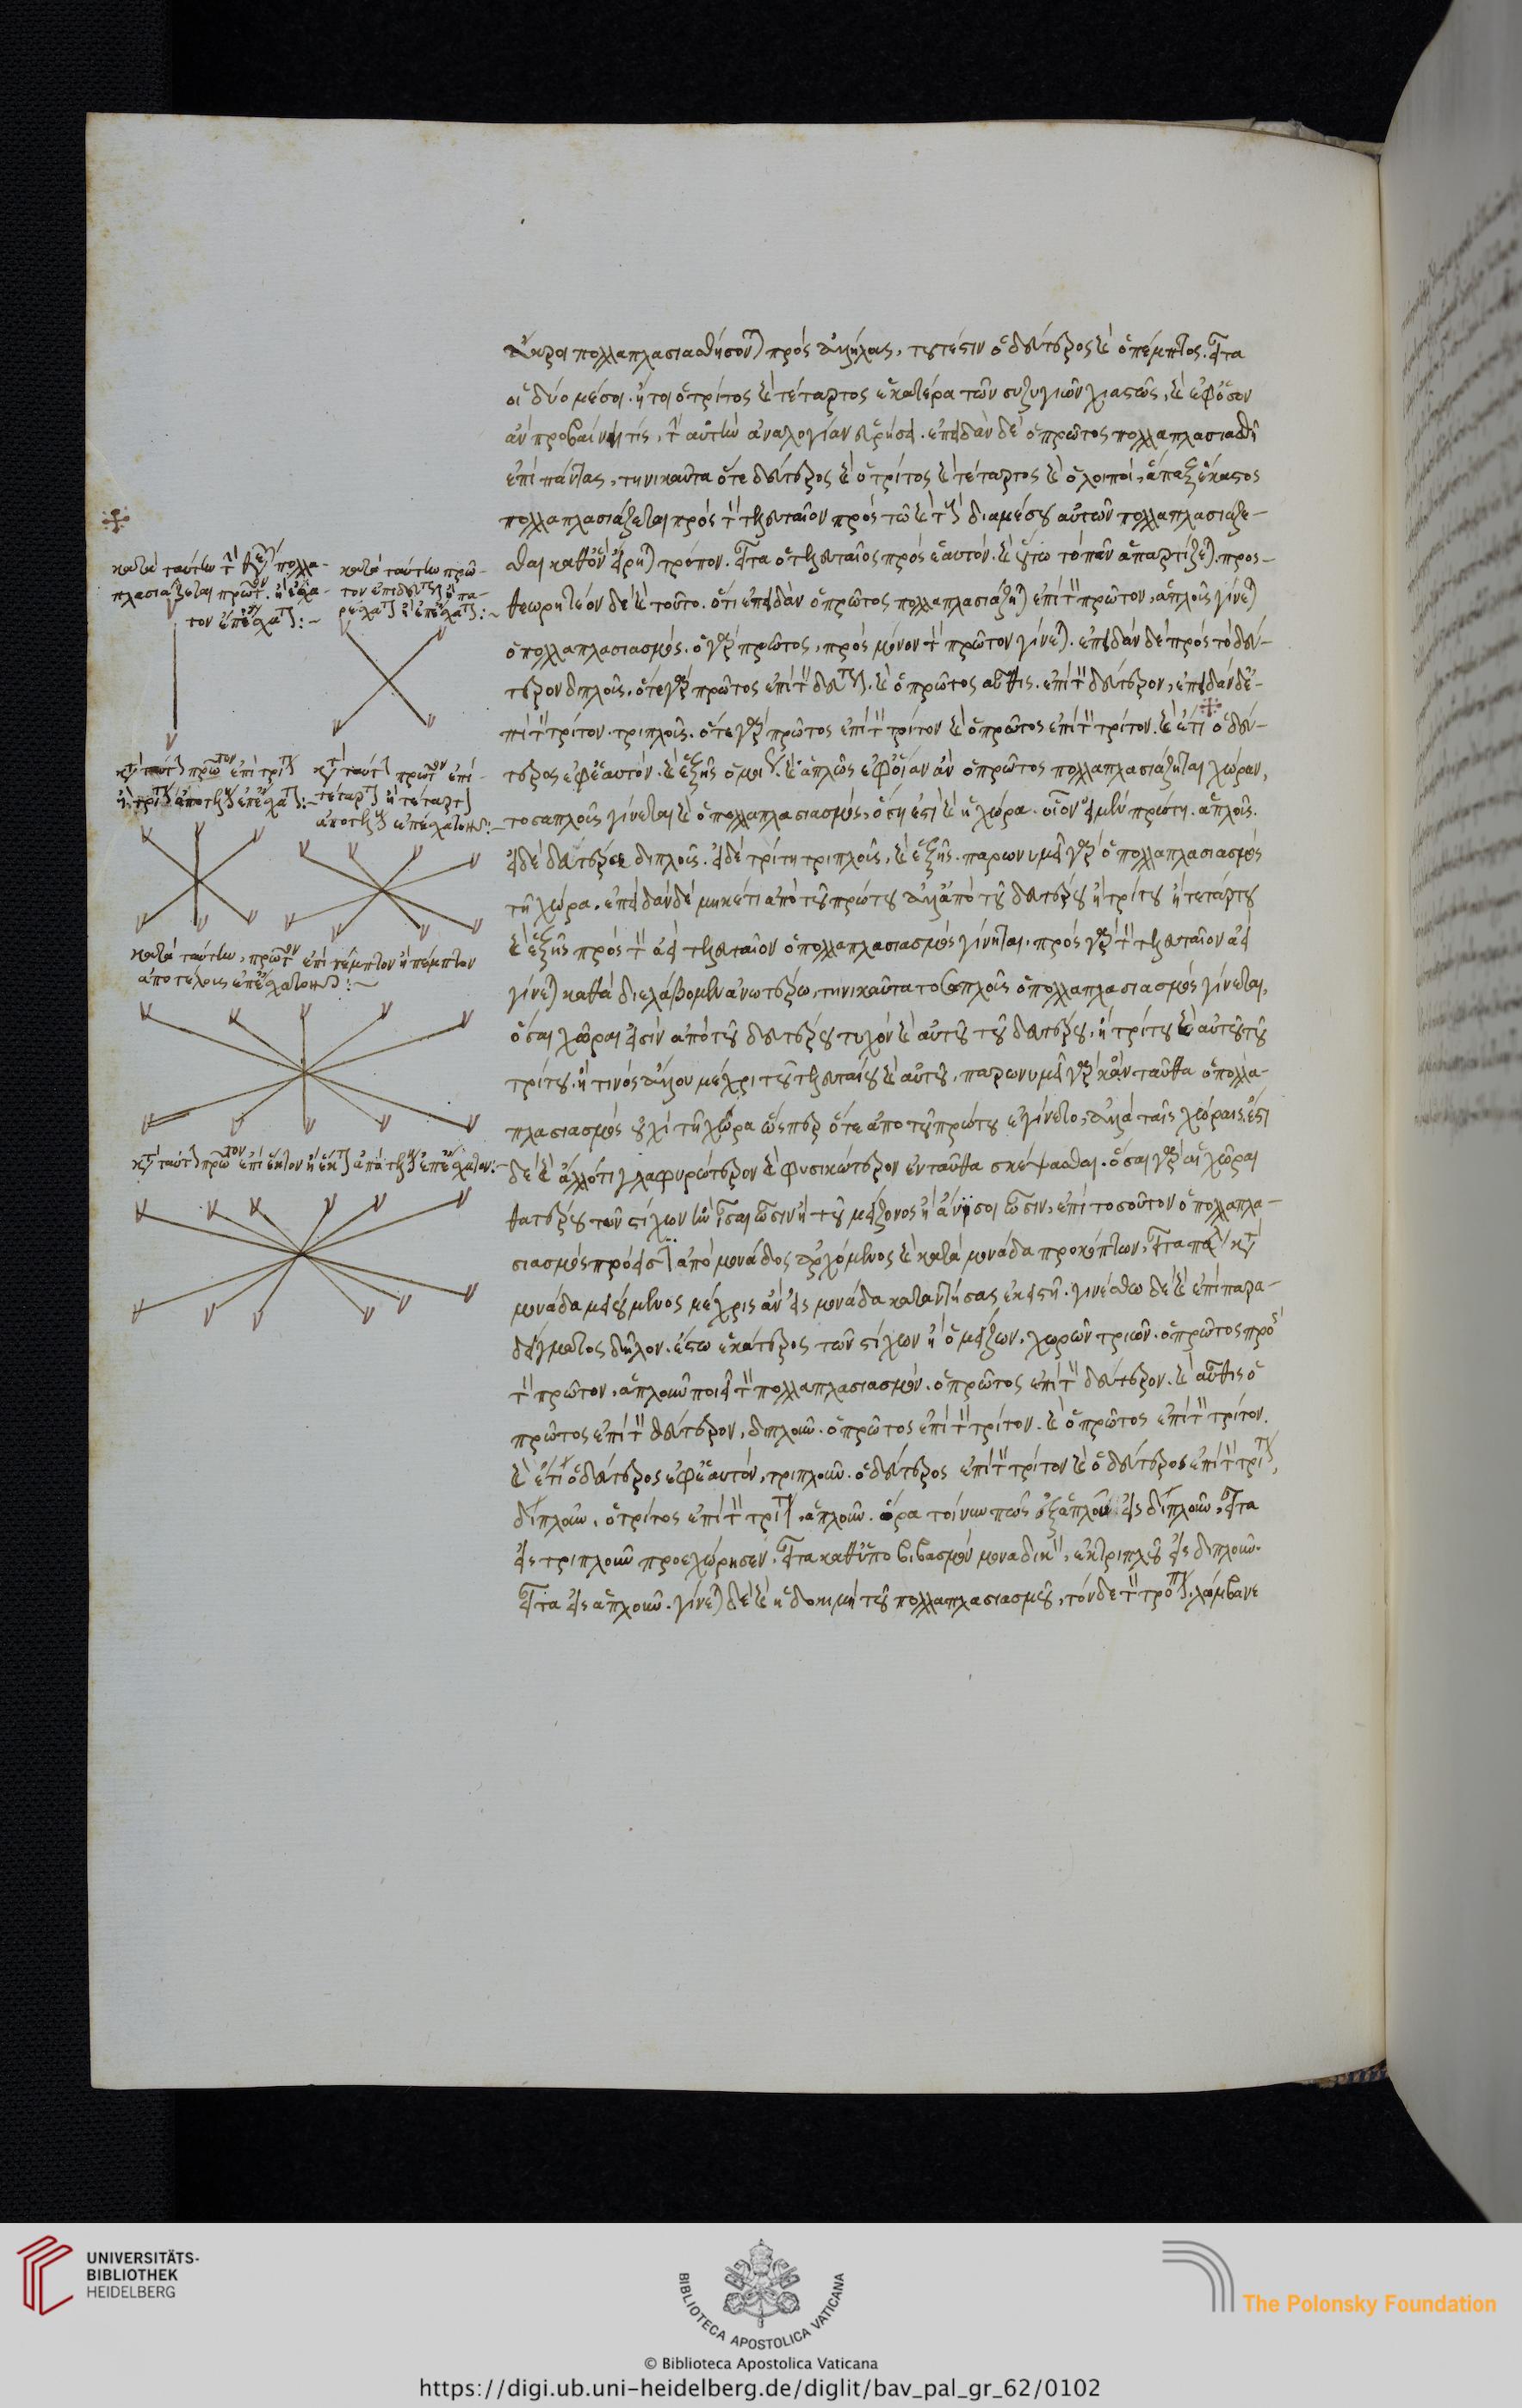 κατὰ ταύτην
πλασιάζεται πρῶτον
κατὰ ταύτην πρῶ-
κατὰ ταύτην, πρῶτον ἐπὶ πέμπτον ἢ πέμπτον
ἄκροι πολλαπλασιασθήσονται πρὸς ἀλλήλους, τουτέστιν ὁ δεύτερος καὶ ὁ πέμπτος. εἶτα
οἱ δύο μέσοι. ἤτοι ὁ τρίτος καὶ τέταρτος ἑκατέρα τῶν συζυγιῶν χιαστῶς, καὶ ἐφόσον
ἂν προβαίνῃ τίς, τὴν αὐτὴν ἀναλογίαν εὑρήσει. ἐπειδὰν δὲ ὁ πρῶτος πολλαπλασιασθῇ
ἐπὶ πάντας, τηνικαῦτα ὅτε δεύτερος καὶ ὁ τρίτος καὶ τέταρτος καὶ ὁ λοιποὶ, ἅπαξ ἕκαστος
πολλαπλασιάζεται πρὸς τὸν τελευταῖον πρὸς τῷ καὶ διαμέσου αὐτῶν πολλαπλασιάζε-
σθαι καθὸν εἴρηται τρόπον. εἶτα ὁ τελευταῖος πρὸς ἑαυτόν. καὶ οὕτω τὸ πᾶν ἀπαρτίζεται. προς-
θεωρητέον δὲ καὶ τοῦτο. ὅτι ἐπειδὰν ὁ πρῶτος πολλαπλασιάζηται ἐπὶ τὸν πρῶτον, ἁπλοῦς γίνεται
ὁ πολλαπλασιασμός. ὁ γὰρ πρῶτος, πρὸς μόνον τὸν πρῶτον γίνεται. ἐπειδὰν δὲ πρὸς τὸ δεύ-
τερον διπλοῦς. ὅτε γὰρ πρῶτος ἐπὶ τὸν δεύτερον. καὶ ὁ πρῶτος αὖθις. ἐπὶ τὸν δεύτερον, ἐπειδὰν δὲ ἐ-
πὶ τὸν τρίτον τριπλοῦς. ὅτε γὰρ πρῶτος ἐπὶ τὸν τρίτον καὶ ὁ πρῶτος ἐπὶ τὸν τρίτον. καὶ ἔτι ὁ δεύ-
τερος ἐφ' ἑαυτόν. καὶ ἑξῆς ὁμοίως. καὶ ἁπλῶς ἐφ' οἵαν ἂν ὁ πρῶτος πολλαπλασιάζηται χώραν,
τοσαπλοῦς γίνεται καὶ ὁ πολλαπλασιασμός, ὅση ἐστὶ καὶ ἡ χώρα. οἷον εἰ μὲν πρώτη. ἁπλοῦς.
εἰ δὲ δευτέρα διπλοῦς. εἰ δὲ τρίτη τριπλοῦς, καὶ ἑξῆς. παρωνυμεῖ γὰρ ὁ πολλαπλασιασμὸς
τῇ χώρα. ἐπειδὰν δὲ μηκέτι ἀπὸ τοῦ πρώτου ἀλλ' ἀπὸ τοῦ δευτέρου ἢ τρίτου ἢ τετάρτου
καὶ ἑξῆς πρὸς τὸν ἀεὶ τελευταῖον ὁ πολλαπλασιασμὸς γίνηται. πρὸς γὰρ τὸν τελευταῖον ἀεὶ
γίνεται καθὰ διελάβομεν ἀνωτέρω, τηνικαῦτα τοσαπλοῦς ὁ πολλαπλασιασμὸς γίνεται,
ὅσαι χῶραι εἰσὶν ἀπὸ τοῦ δευτέρου τυχὸν καὶ αὐτοῦ τοῦ δευτέρου. ἢ τρίτου καὶ αὐτοῦ τοῦ
τρίτου. ἢ τινὸς ἄλλου μέχρι τοῦ τελευταίου καὶ αὐτοῦ, παρωνυμεῖ γὰρ κἀνταῦθα ὁ πολλα-
πλασιασμὸς οὐχὶ τῇ χώρα ὥςπερ ὅτε ἀπὸ τοῦ πρώτου ἐγίνετο, ἀλλὰ ταῖς χώραις. ἔστι
δὲ καὶ ἄλλό τι γλαφυρώτερον καὶ φυσικώτερον ἐνταῦθα σκέψασθαι. ὅσαι γὰρ αἱ χῶραι
θατέρου τῶν στίχων ἂν ἴσαι ὦσιν ἢ τοῦ μείζονος ἢ ἄνισοι ὦσιν, ἐπὶ τοσοῦτον ὁ πολλαπλα-
σιασμὸς πρόεισιν ἀπὸ μονάδος ἀρχόμενος καὶ κατὰ μονάδα προκόπτων, εἶτα πάλιν κατὰ
μονάδα μειούμενος μέχρις ἂν εἰς μονάδα καταντήσας ἐκεῖ στῇ. γινέσθω δὲ καὶ ἐπὶ παρα-
δείγματος δῆλον. ἔστω ἑκάτερος τῶν στίχων ἢ ὁ μείζων, χωρῶν τριῶν. ὁ πρῶτος πρὸς
τὸν πρῶτον, ἁπλοῦν ποιεῖ τὸν πολλαπλασιασμόν. ὁ πρῶτος ἐπὶ τὸν δεύτερον. καὶ αὖθις ὁ
πρῶτος ἐπὶ τὸν δεύτερον, διπλοῦν. ὁ πρῶτος ἐπὶ τὸν τρίτον. καὶ ὁ πρῶτος ἐπὶ τὸν τρίτον.
καὶ ἔτι ὁ δεύτερος ἐφ' ἑαυτόν, τριπλοῦν. ὁ δεύτερος ἐπὶ τὸν τρίτον καὶ ὁ δεύτερος ἐπὶ τὸν τρίτον,
διπλοῦν. ὁ τρίτος ἐπὶ τὸν τρίτον, ἁπλοῦν. ὅρα τοίνυν πῶς ἐξ ἁπλοῦ εἰς διπλοῦν, εἶτα
εἰς τριπλοῦν προεχώρησεν. εἶτα καθ' ὑποβιβασμὸν μοναδικὸν, ἐκ τριπλοῦ εἰς διπλοῦν.
εἶτα εἰς ἁπλοῦν. γίνεται δὲ καὶ ἡ δοκιμὴ τοῦ πολλαπλασιασμοῦ, τόνδε τὸν τρόπον. λάμβανε
UNIVERSITÄTS-
BIBLIOTHEK
HEIDELBERG
BIBLIOTECA APOSTOLICA VATICANA
The Polonsky Foundation
© Biblioteca Apostolica Vaticana
https://digi.ub.uni-heidelberg.de/diglit/bav_pal_gr_62/0102